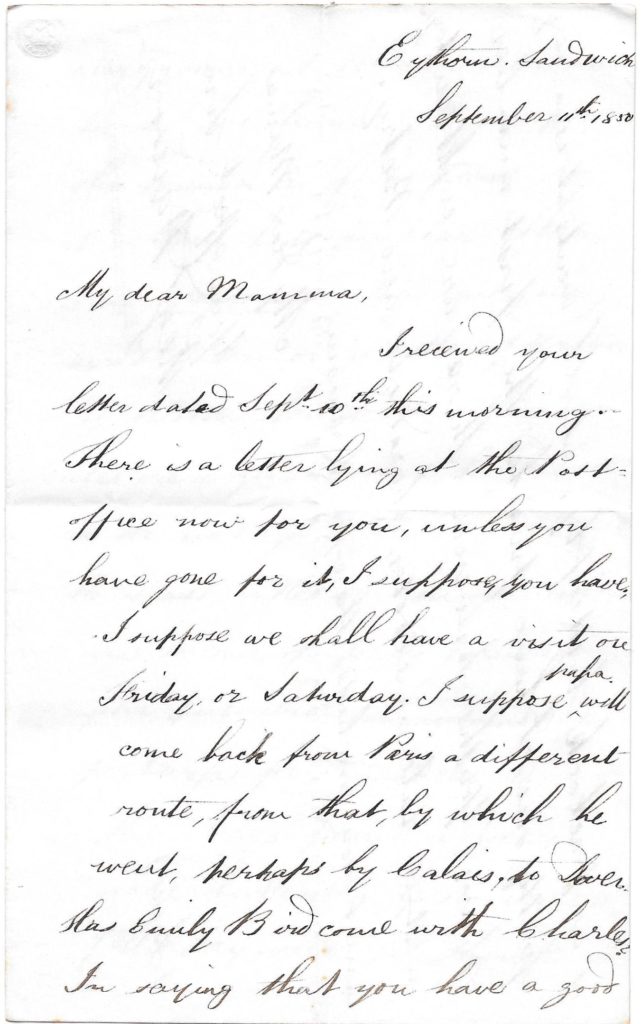 Eythorn. Sandwich
September 11th 1850
My dear Mamma,
I received your
letter dated Sept 10th this morning.
There is a letter lying at the Post-
office now for you, unless you
have gone for it, I suppose, you have,
I suppose we shall have a visit on
Friday, or Saturday. I suppose ^papa. will
come back from Paris a different
route, from that, by which he
went, perhaps by Calais, to Dover.
Has Emily Bird come with Charles.
In saying that you have a good